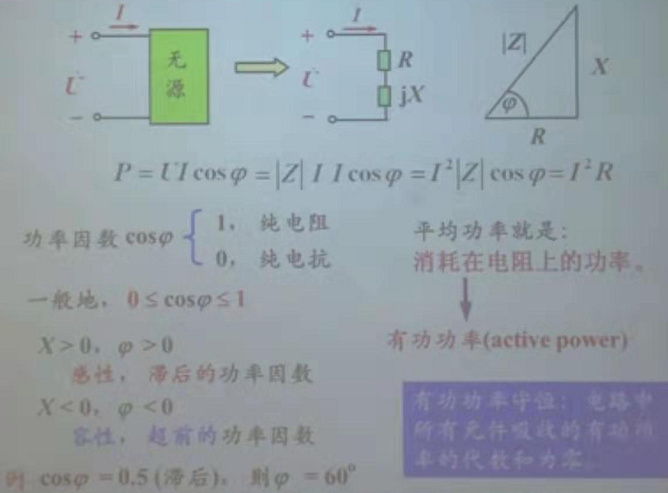 I
+
U̇
−
无
源
I
+
U̇
−
R
jX
|Z|
X
φ
R
P = UI cosφ = |Z| I I cosφ = I²|Z| cosφ = I²R
功率因数 cosφ { 1， 纯电阻
0， 纯电抗
平均功率就是：
消耗在电阻上的功率。
一般地，0 ≤ cosφ ≤ 1
有功功率(active power)
X > 0，φ > 0
感性，滞后的功率因数
X < 0，φ < 0
容性，超前的功率因数
有功功率守恒：电路中
所有元件吸收的有功功
率的代数和为零
例 cosφ = 0.5 (滞后)，则φ = 60°